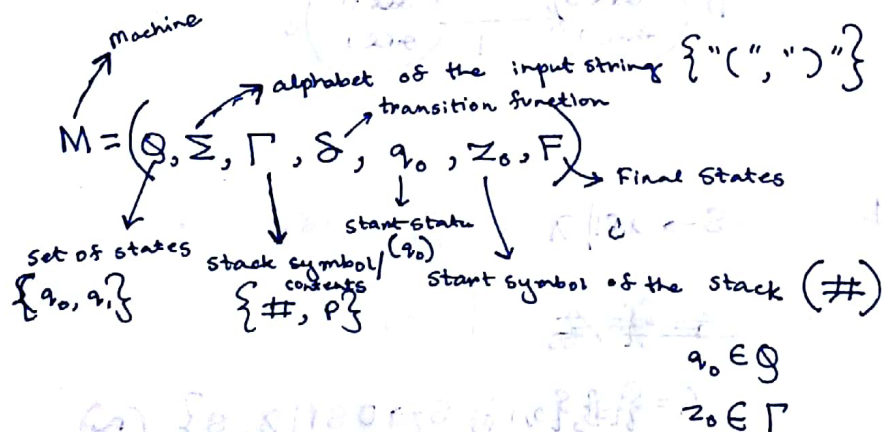 Machine
alphabet of the input string {"(", ")"}
transition function
M = (Q, Σ, Γ, δ, q₀, Z₀, F)
Final States
start state
(q₀)
set of states
{q₀, q₁}
stack symbol/
contents
{#, P}
start symbol of the stack (#)
q₀ ∈ Q
z₀ ∈ Γ